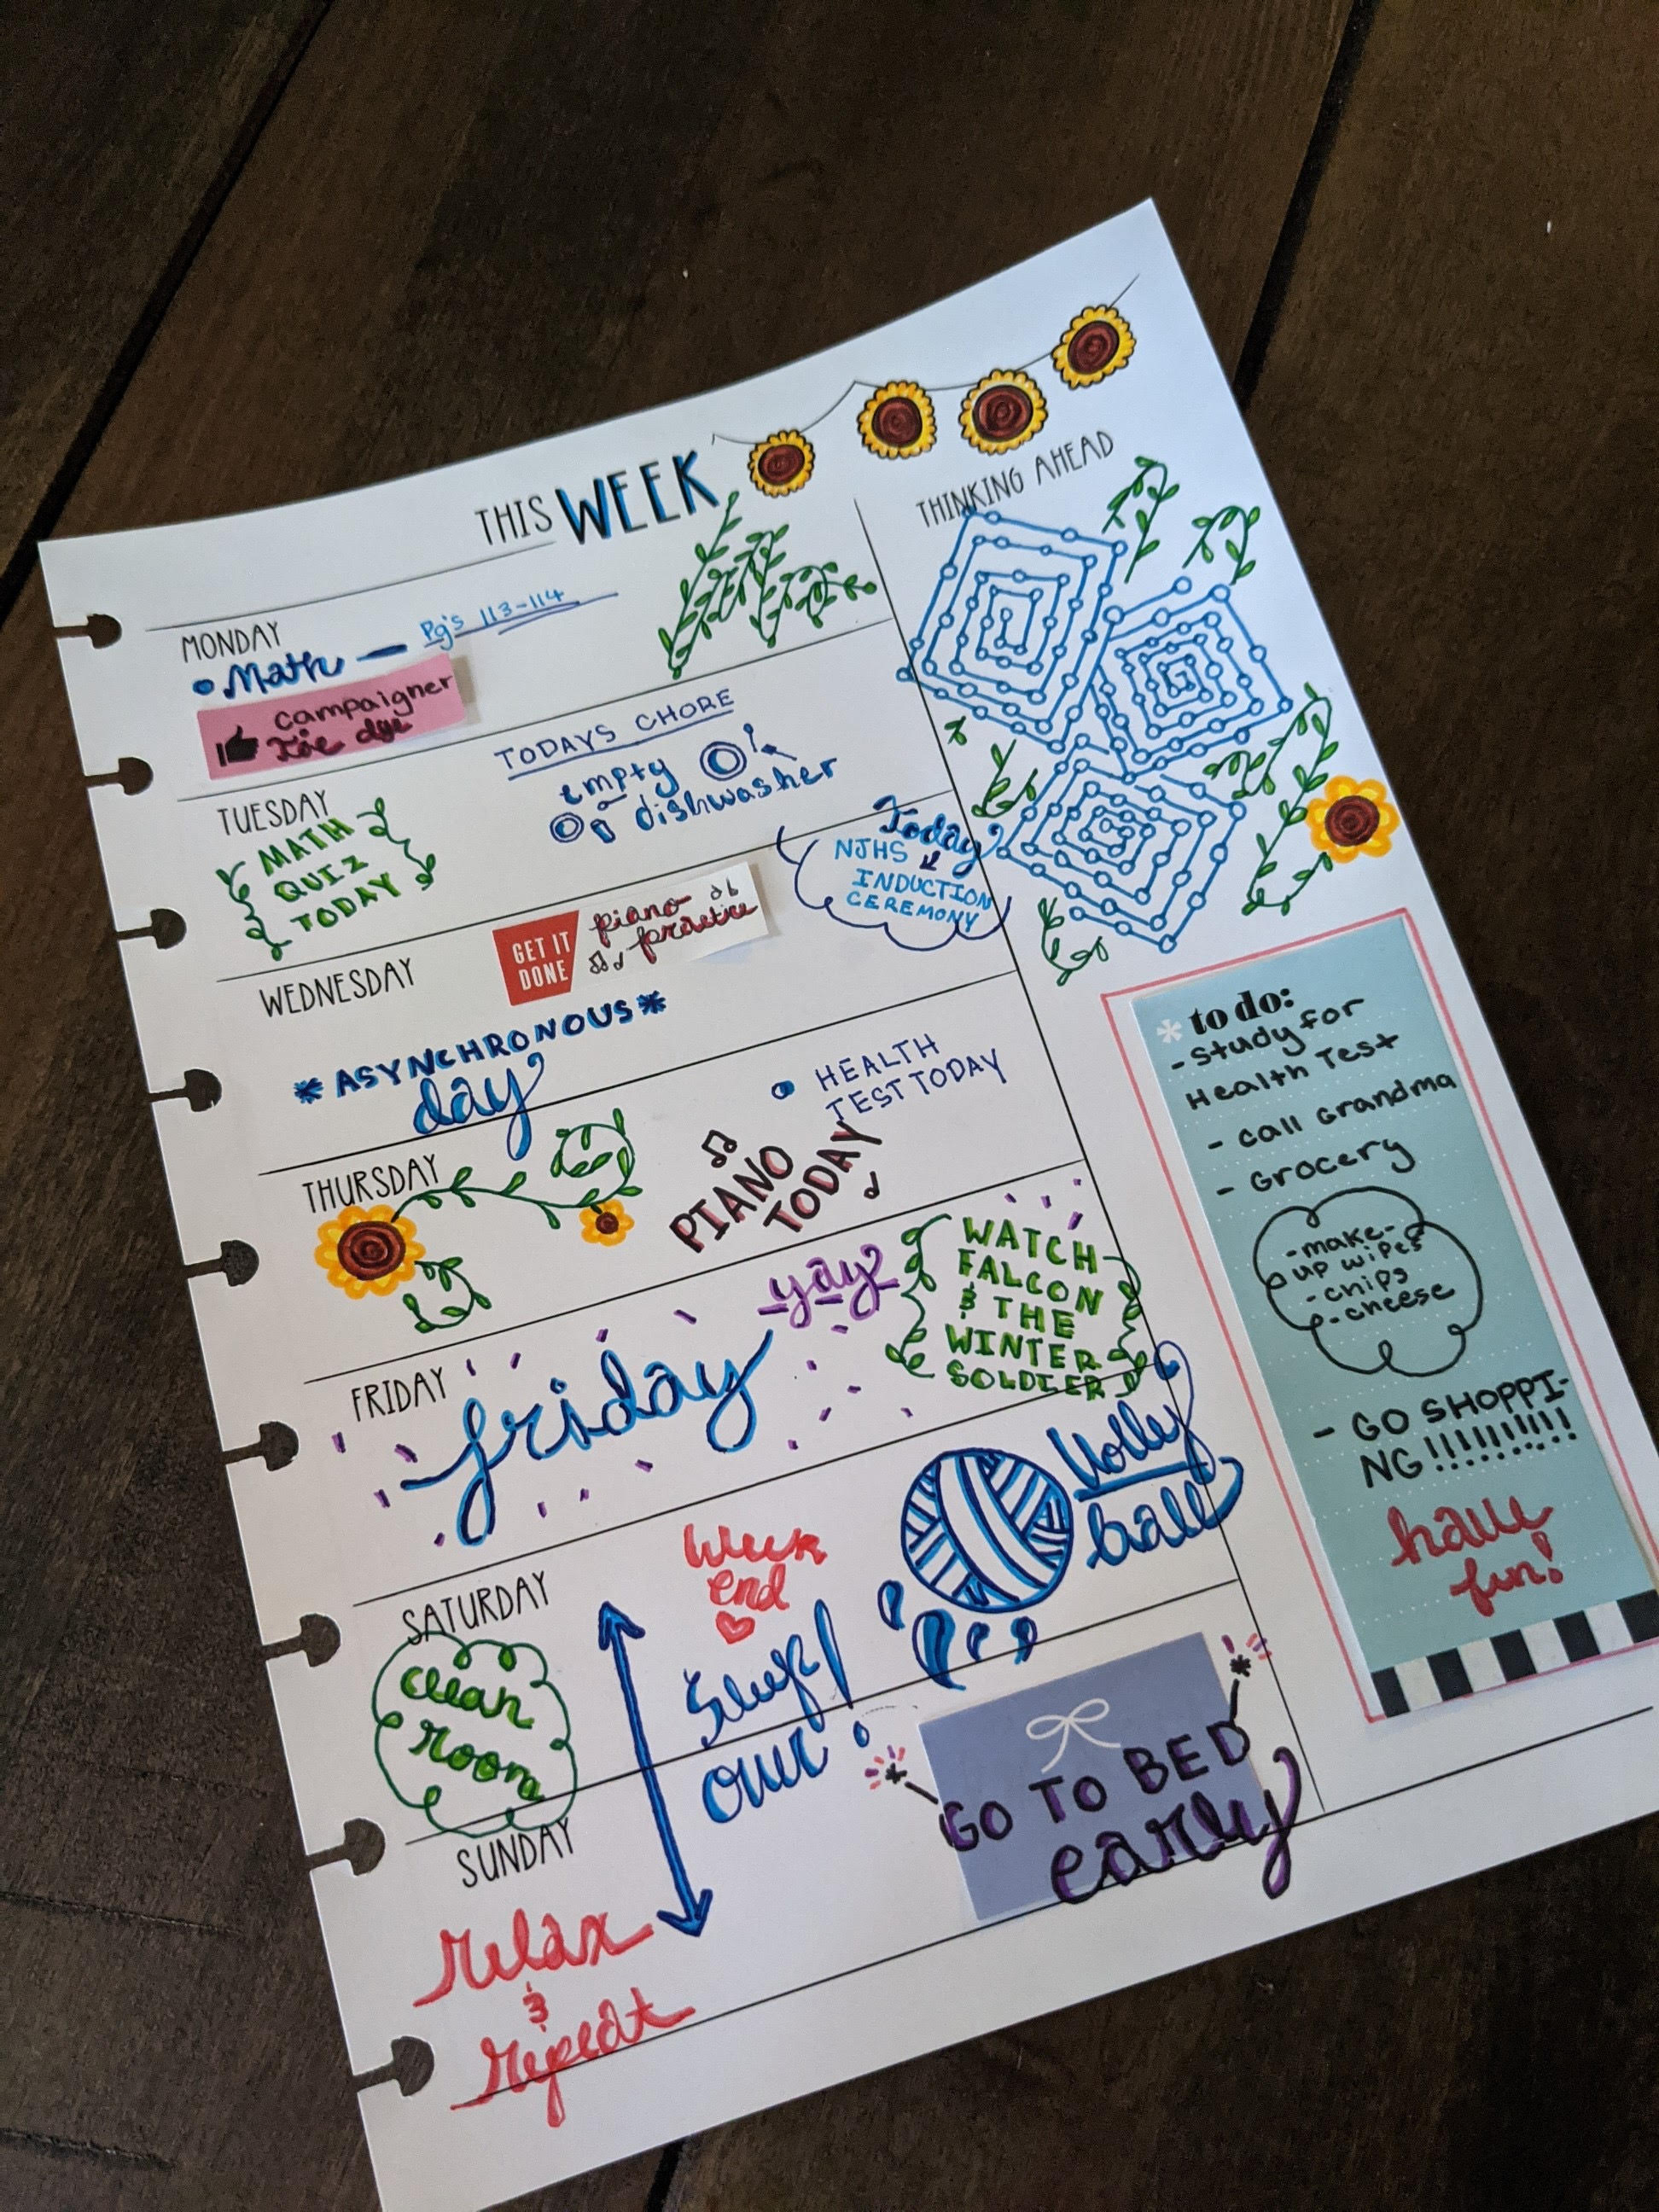 THIS WEEK
THINKING AHEAD
MONDAY
• Math — Pg's 113-114
campaigner
tie dye
TUESDAY
MATH
QUIZ
TODAY
TODAYS CHORE
empty
dishwasher
WEDNESDAY
GET IT
DONE
piano
practice
Today
NJHS
INDUCTION
CEREMONY
* ASYNCHRONOUS *
day
THURSDAY
• HEALTH
TEST TODAY
PIANO
TODAY
FRIDAY
friday
yay
WATCH
FALCON
& THE
WINTER
SOLDIER
SATURDAY
clean
room
week
end
Sleep
over!
Volley
ball
SUNDAY
relax
&
repeat
GO TO BED
early
* to do:
- Study for
Health Test
- call Grandma
- Grocery
- make-
up wipes
- chips
- cheese
- GO SHOPPI-
NG!!!!!!!!!!
have
fun!